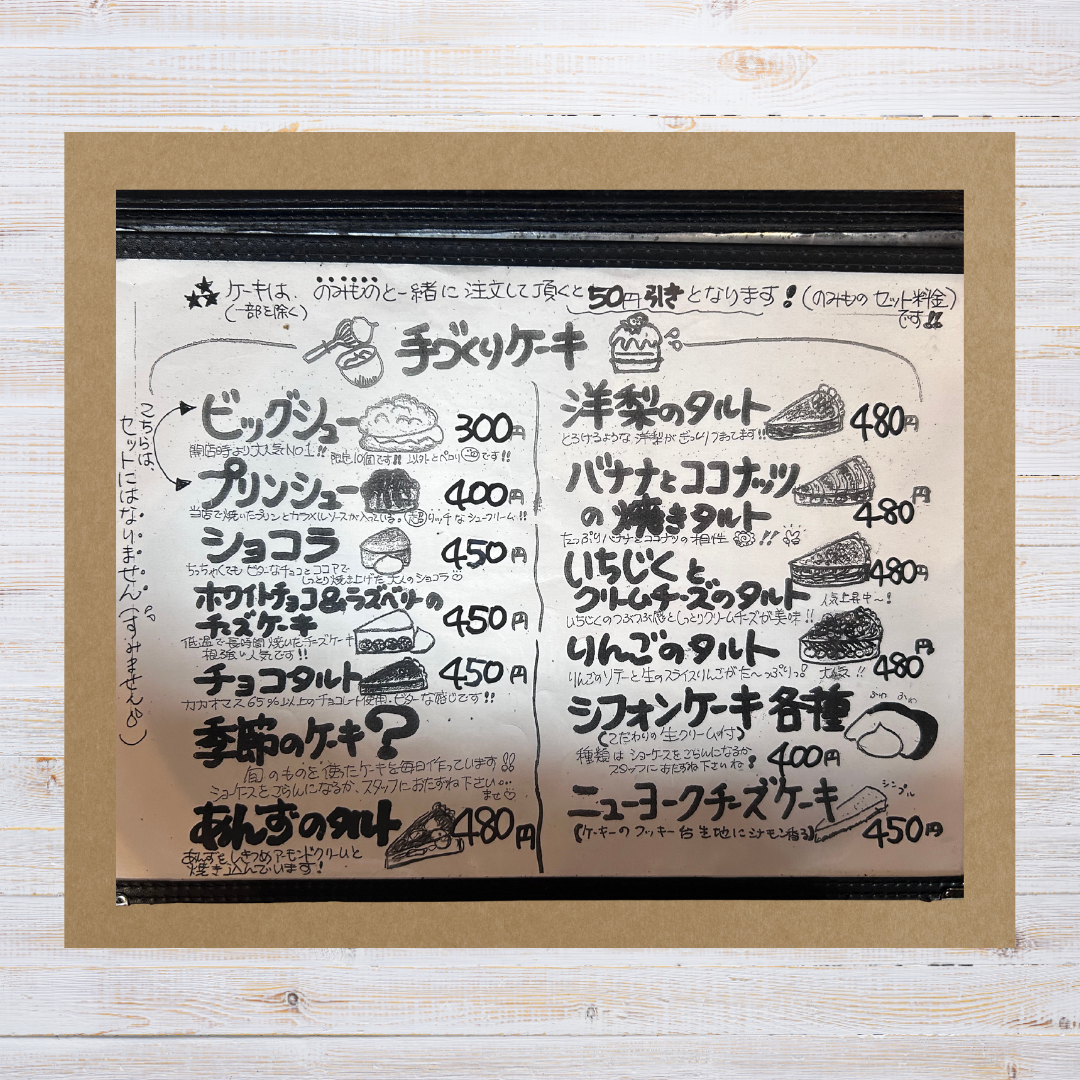 ケーキは、のみものと一緒に注文して頂くと50円引きとなります!(のみものセット料金)
(一部を除く)
です!!
手づくりケーキ
こちらは、
セットにはなりません(すみません)
ビッグシュー 300円
開店時より大人気NO.1!! 限定10個です!!
プリンシュー 400円
当店で焼いたプリンとカラメルソースが入っている。リッチなシュークリーム!!
ショコラ 450円
ちっちゃくてもビターなチョコとココアで
しっとり焼き上げた大人のショコラ♡
ホワイトチョコ&ラズベリーの
チーズケーキ 450円
低温で長時間焼いたチーズケーキ
根強い人気です!!
チョコタルト 450円
カカオマス65%以上のチョコレート使用。ビターな感じです!!
季節のケーキ?
旬のものを使ったケーキを毎日作っています!!
ショーケースをごらんになるか、スタッフにおたずね下さい
ませ♡
あんずのタルト 480円
あんずをしきつめアーモンドクリームと
焼き込んでいます!
洋梨のタルト 480円
とろけるような洋梨がぎっしりつまってます!!
バナナとココナッツ
の焼きタルト 480円
たっぷりバナナとココナツの相性◎!!
いちじくと
クリームチーズのタルト 480円
人気上昇中〜!
いちじくのつぶつぶ感としっとりクリームチーズが美味!!
りんごのタルト 480円
りんごのソテーと生のスライスりんごがた〜っぷりっ。 大人気!!
シフォンケーキ各種
ふわ ふわ
(こだわりの生クリーム付)
種類はショーケースをごらんになるか 400円
スタッフにおたずね下さいね!
ニューヨークチーズケーキ
シンプル
(ケーキのクッキー台生地にシナモン香る) 450円